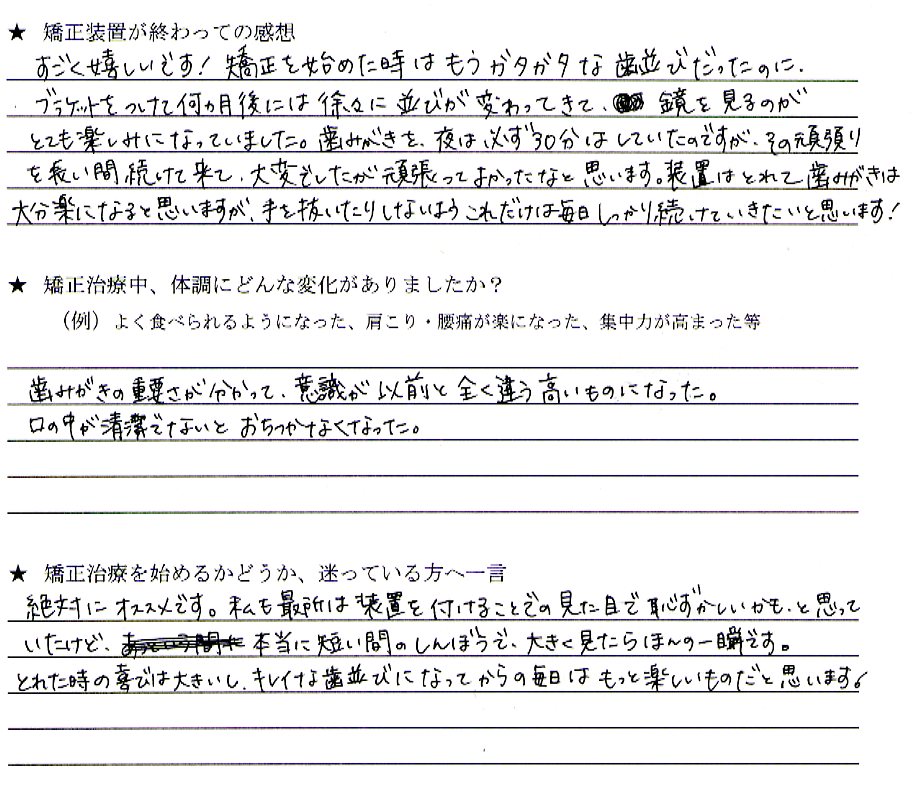 ★ 矯正装置が終わっての感想
すごく嬉しいです！矯正を始めた時はもうガタガタな歯並びだったのに、
ブラケットをつけて何カ月後には徐々に並びが変わってきて、鏡を見るのが
とても楽しみになっていました。歯みがきを、夜は必ず30分はしていたのですが、その頑張り
を長い間続けて来て、大変でしたが頑張ってよかったなと思います。装置はとれて歯みがきは
大分楽になると思いますが、手を抜いたりしないようこれだけは毎日しっかり続けていきたいと思います！
★ 矯正治療中、体調にどんな変化がありましたか？
（例）よく食べられるようになった、肩こり・腰痛が楽になった、集中力が高まった等
歯みがきの重要さが分かって、意識が以前と全く違う高いものになった。
口の中が清潔でないとおちつかなくなった。
★ 矯正治療を始めるかどうか、迷っている方へ一言
絶対にオススメです。私も最所は装置を付けることでの見た目で恥ずかしいかも、と思って
いたけど、本当に短い間のしんぼうで、大きく見たらほんの一瞬です。
とれた時の喜びは大きいし、キレイな歯並びになってからの毎日はもっと楽しいものだと思います。